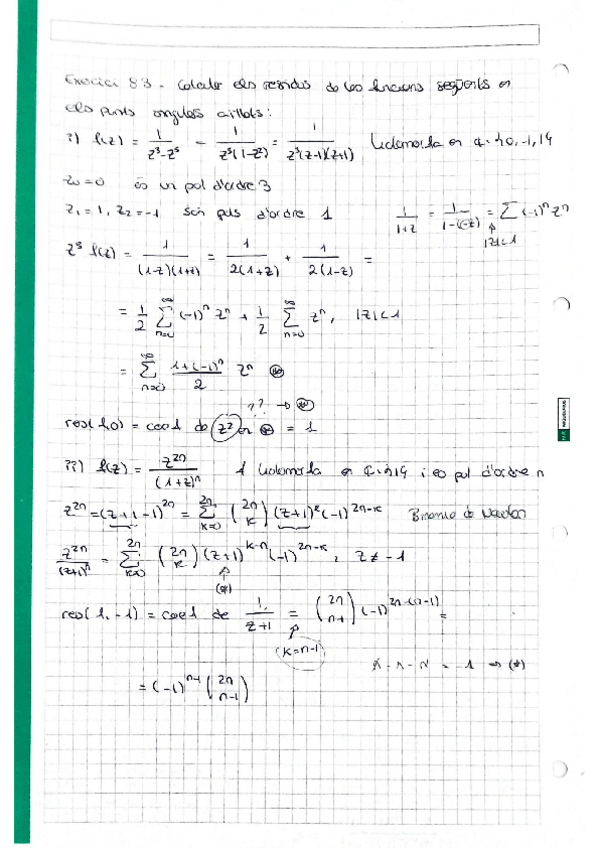 Exercici 8.3 - Calcular els residus de les funcions següents en
els punts singulars aïllats:
i) f(z) = 1/(z³-z⁵) = 1/(z³(1-z²)) = 1/(z³(z-1)(z+1)) holomorfa en ℂ\{0,-1,1}
z₀=0 és un pol d'ordre 3
z₁=1, z₂=-1 són pols d'ordre 1
1/(1+z) = 1/(1-(-z)) = Σ(-1)ⁿ zⁿ
|z|<1
z³ f(z) = 1/((1-z)(1+z)) = 1/(2(1+z)) + 1/(2(1-z)) =
= 1/2 Σ_{n=0}^∞ (-1)ⁿ zⁿ + 1/2 Σ_{n=0}^∞ zⁿ, |z|<1
= Σ_{n=0}^∞ (1+(-1)ⁿ)/2 zⁿ ⊛
?? → ⊛
res(f,0) = coef de z² en ⊛ = 1
ii) f(z) = z²ⁿ/(1+z)ⁿ f holomorfa en ℂ\{-1} i és pol d'ordre n
z²ⁿ = (z+1-1)²ⁿ = Σ_{k=0}^{2n} (2n k) (z+1)ᵏ (-1)²ⁿ⁻ᵏ Binomio de Newton
z²ⁿ/(z+1)ⁿ = Σ_{k=0}^{2n} (2n k) (z+1)ᵏ⁻ⁿ (-1)²ⁿ⁻ᵏ, z ≠ -1
(*)
res(f,-1) = coef de 1/(z+1) = (2n n-1) (-1)^{2n-(n-1)} =
(k=n-1)
k-n = -1 ⇒ (*)
= (-1)ⁿ⁻¹ (2n n-1)